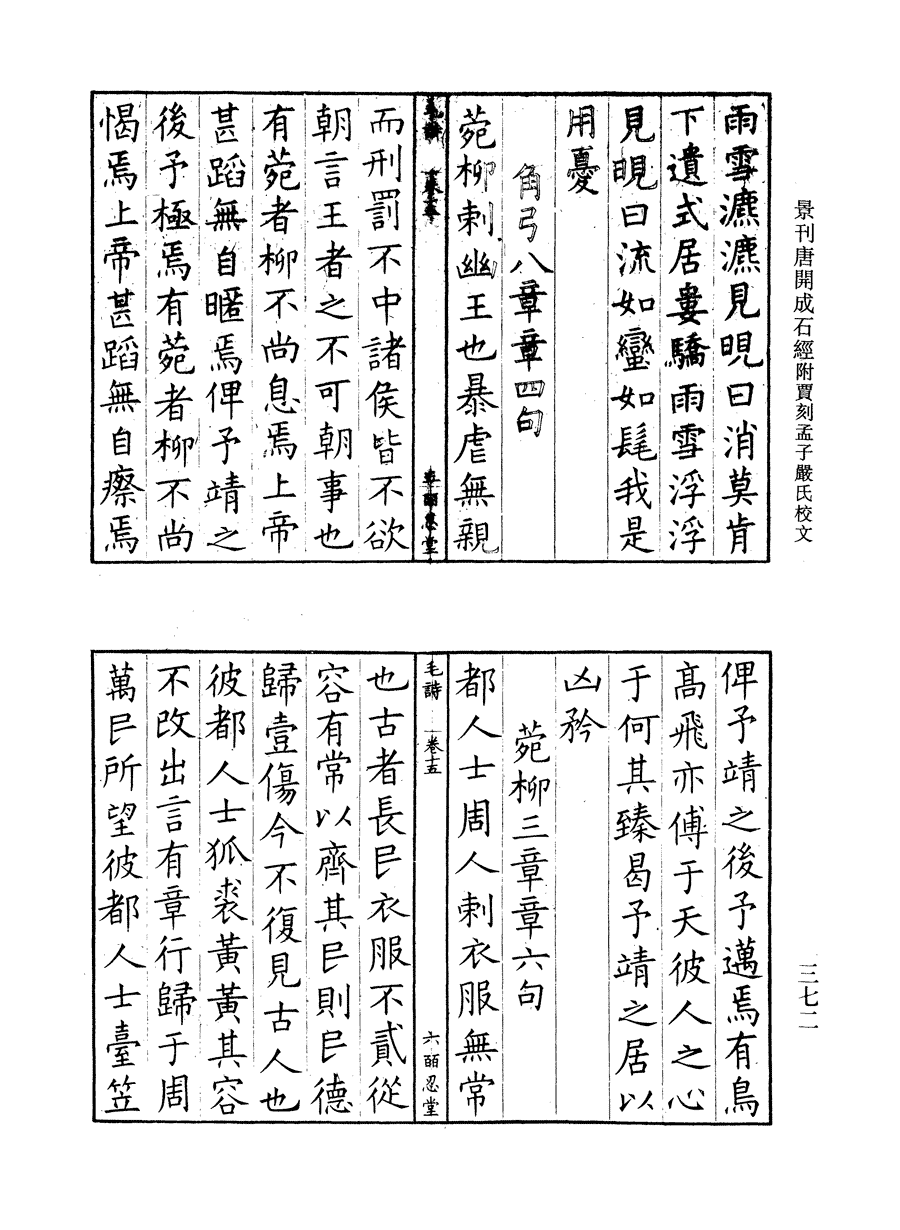 景刊唐開成石經附賈刻孟子嚴氏校文
三七二
雨雪瀌瀌見晛曰消莫肯
下遺式居婁驕雨雪浮浮
見晛曰流如蠻如髦我是
用憂
角弓八章章四句
菀柳刺幽王也暴虐無親
毛詩
皕忍堂
而刑罰不中諸侯皆不欲
朝言王者之不可朝事也
有菀者柳不尚息焉上帝
甚蹈無自暱焉俾予靖之
後予極焉有菀者柳不尚
愒焉上帝甚蹈無自瘵焉
俾予靖之後予邁焉有鳥
高飛亦傅于天彼人之心
于何其臻曷予靖之居以
凶矜
菀柳三章章六句
都人士周人刺衣服無常
毛詩 卷十五 六 皕忍堂
也古者長民衣服不貳從
容有常以齊其民則民德
歸壹傷今不復見古人也
彼都人士狐裘黃黃其容
不改出言有章行歸于周
萬民所望彼都人士臺笠